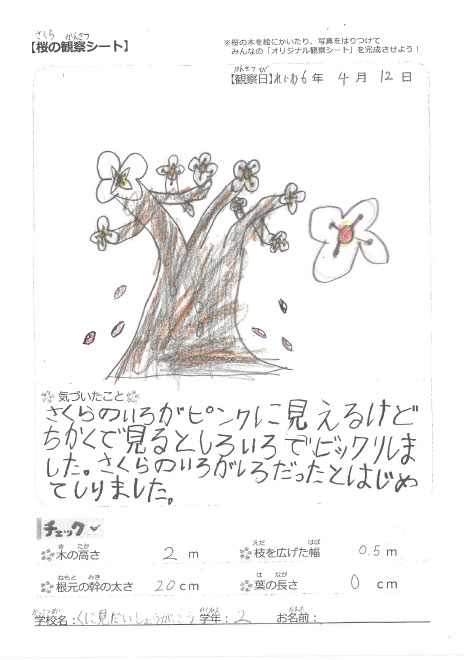 さくら かんさつ
【桜の観察シート】
※桜の木を絵にかいたり、写真をはりつけて
みんなの「オリジナル観察シート」を完成させよう！
かんさつ び
【観察日】れいわ6年 4月 12日
気づいたこと
さくらのいろがピンクに見えるけど
ちかくで見るとしろいろでビックリしま
した。さくらのいろがしろだったとはじめ
てしりました。
チェック
き たか
木の高さ 2 m
えだ はば
枝を広げた幅 0.5 m
ねもと みき
根元の幹の太さ 20 cm
は なが
葉の長さ 0 cm
がっこうめい がくねん なまえ
学校名：くに見だいしょうがっこう 学年：2 お名前：